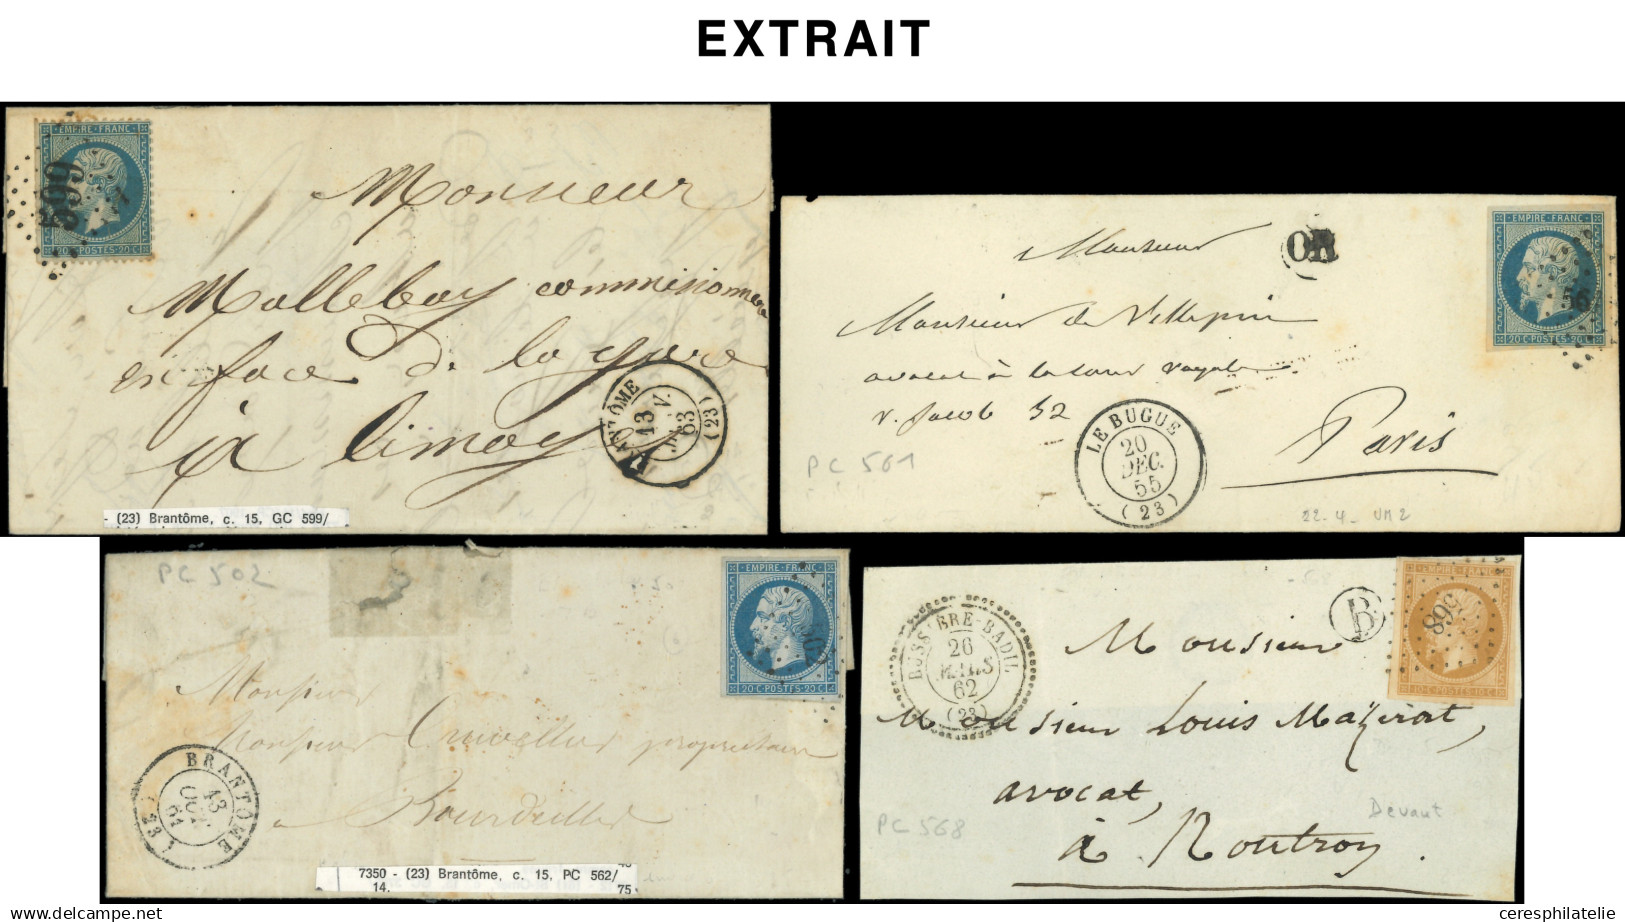 EXTRAIT
EMPIRE·FRANC
599
20·C·POSTES·20·C
Monsieur
Mallebay commissionnaire
en face de la gare
à limoges
BRANTÔME
13
63
(23)
- (23) Brantôme, c. 15, GC 599/
EMPIRE·FRANC
56
20·C·POSTES·20·C
OR
Monsieur
Monsieur de Villepin
avocat à la cour royale
r. Jacob 52
Paris
PC 561
LE BUGUE
20
DEC.
55
(23)
22-4-
PC 502
EMPIRE·FRANC
20·C·POSTES·20·C
Monsieur
Monsieur propriétaire
à Bourdeilles
BRANTÔME
13
61
(23)
7350 - (23) Brantôme, c. 15, PC 562/
14.
75
BUSSIERE-BADIL
26
MARS
62
(23)
B
568
10·C·POSTES·10·C
Monsieur
Monsieur Louis Mazerat,
avocat,
à Nontron.
PC 568
Devant
ceresphilatelie